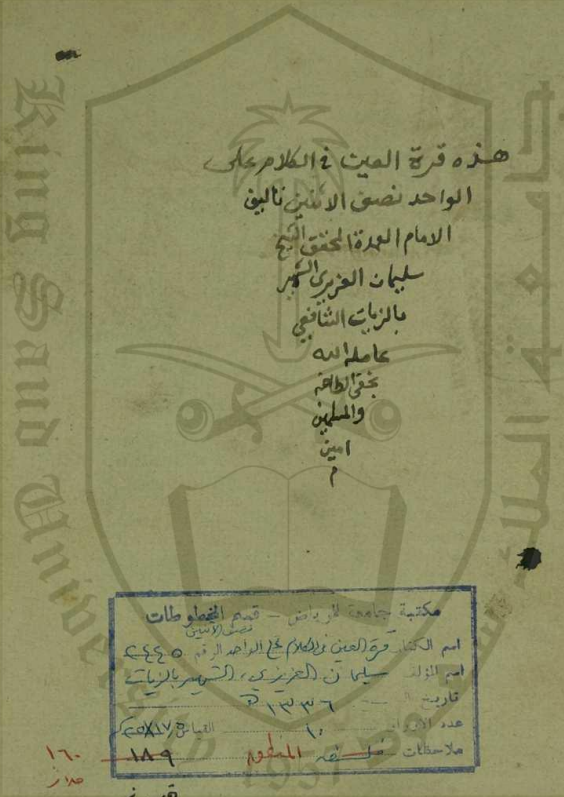 هذه قرة العين في الكلام على
الواحد نصف الاثنين تاليف
الامام العمدة المحقق الشيخ
سليمان العزيزى الشهير
بالزيات الشافعي
عامله الله
بخفى الطافه
والمسلمين
امين
م
مكتبة جامعة الرياض - قسم المخطوطات
نصف الاثنين
اسم الكتاب قرة العين في الكلام على الواحد الرقم ٢٤٤٥
اسم المؤلف سليمان العزيزي، الشهير بالزيات
تاريخ ١٣٣٦ هـ
عدد الاوراق ١٠ القياس
ملاحظات المنطق
١٨٩
١٦٠
King Saud University
جامعة الملك
1957